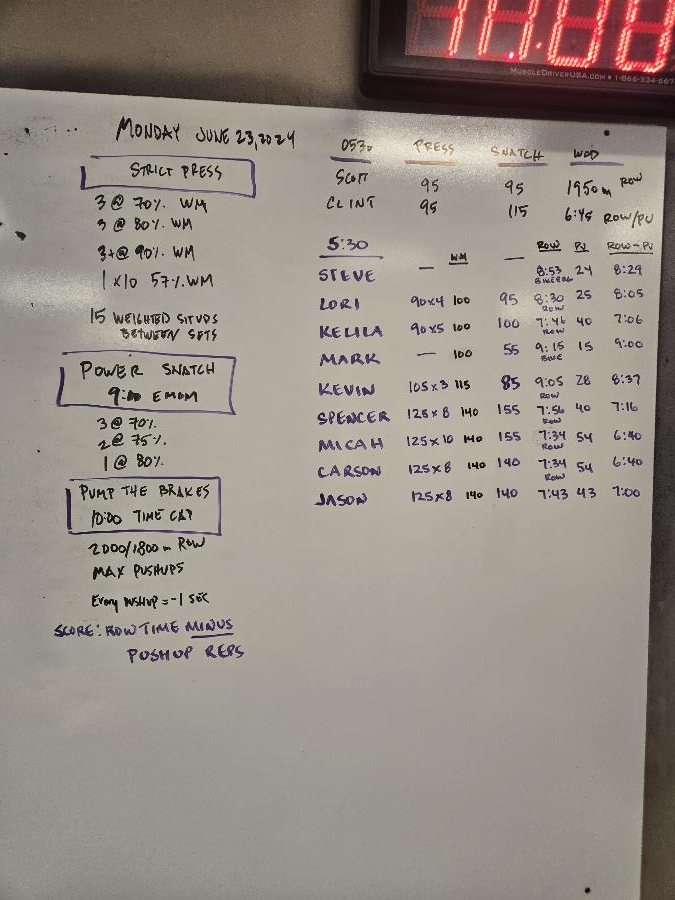 11:00
MUSCLEDRIVERUSA.COM • 1-866-334-667
MONDAY JUNE 23, 2024
STRICT PRESS
3 @ 70% WM
3 @ 80% WM
3+@ 90% WM
1 x10 57% WM
15 WEIGHTED SITUPS
BETWEEN SETS
POWER SNATCH
9:00 EMOM
3 @ 70%
2 @ 75%
1 @ 80%
PUMP THE BRAKES
10:00 TIME CAP
2000/1800 m ROW
MAX PUSHUPS
Every PUSHUP = -1 SEC
SCORE: ROW TIME MINUS
PUSHUP REPS
0530 PRESS SNATCH WOD
SCOTT 95 95 1950m ROW
CLINT 95 115 6:45 ROW/PU
5:30 WM ROW PU ROW-PU
STEVE — — 8:53 BIKEERG 24 8:29
LORI 90x4 100 95 8:30 ROW 25 8:05
KELILA 90x5 100 100 7:46 ROW 40 7:06
MARK — 100 55 9:15 BIKE 15 9:00
KEVIN 105x3 115 85 9:05 ROW 28 8:37
SPENCER 125x8 140 155 7:56 ROW 40 7:16
MICAH 125x10 140 155 7:34 ROW 54 6:40
CARSON 125x8 140 140 7:34 ROW 54 6:40
JASON 125x8 140 140 7:43 43 7:00